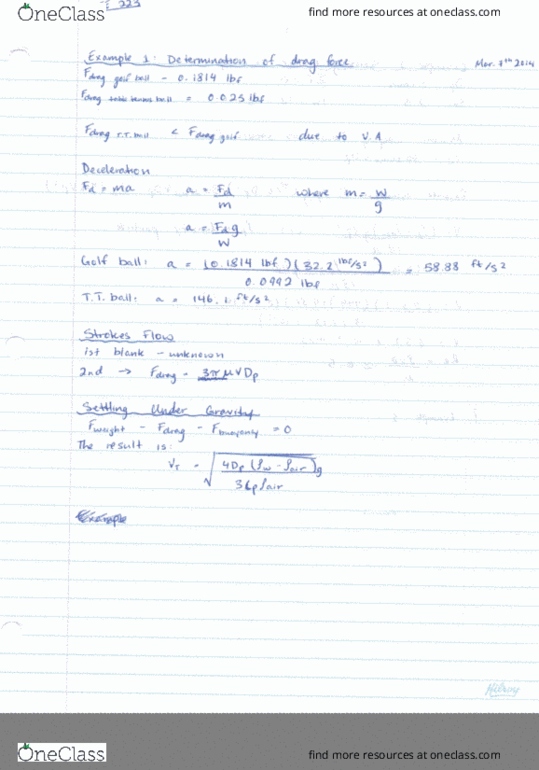 OneClass
find more resources at oneclass.com
E 223
Example 1: Determination of drag force
Mar. 7th 2014
Fdrag golf ball = 0.1814 lbf
Fdrag table tennis ball = 0.025 lbf
Fdrag T.T. ball < Fdrag golf due to V.A
Deceleration
Fd = ma a = Fd/m where m = W/g
a = Fd g/W
Golf ball: a = (0.1814 lbf)(32.2 lbf/s²)/0.0992 lbf = 58.88 ft/s²
T.T. ball: a = 146.1 ft/s²
Strokes Flow
1st blank - unknown
2nd → Fdrag = 3πμVDp
Settling Under Gravity
Fweight - Fdrag - Fbuoyancy = 0
The result is:
VT = √(4Dp(ρw - ρair)g/3CDρair)
Example
Hilroy
OneClass
find more resources at oneclass.com